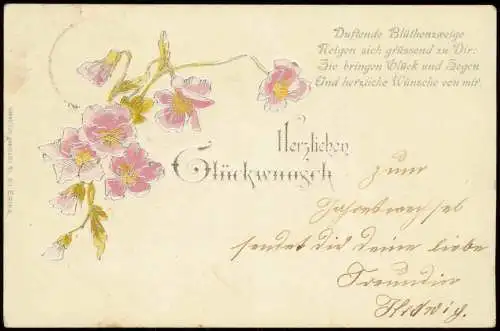 Duftende Blüthenzweige
Neigen sich grüssend zu Dir:
Sie bringen Glück und Segen
Und herzliche Wünsche von mir.
Herzlichen
Glückwunsch
zum
Jahreswechsel
sendet dir deine liebe
Freundin
Hedwig.